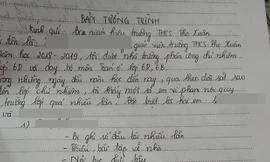 BẢN TƯỜNG TRÌNH
Kính gửi: Ban giám hiệu trường THCS Thọ Xuân
tên là: giáo viên trường THCS Thọ Xuân
Năm học 2018-2019, tôi được nhà trường phân công chủ nhiệm
lớp 6D và dạy bộ môn toán 6 lớp 6D, 6B
trong những ngày đầu năm học đến nay, qua theo dõi sát sao
lớp chủ nhiệm, tôi thấy một số em vi phạm nội quy
trường lớp quá nhiều lần. Đặc biệt là hai em:
và
1)
- Bị ghi sổ đầu bài nhiều lần
- Thiếu bài tập về nhà